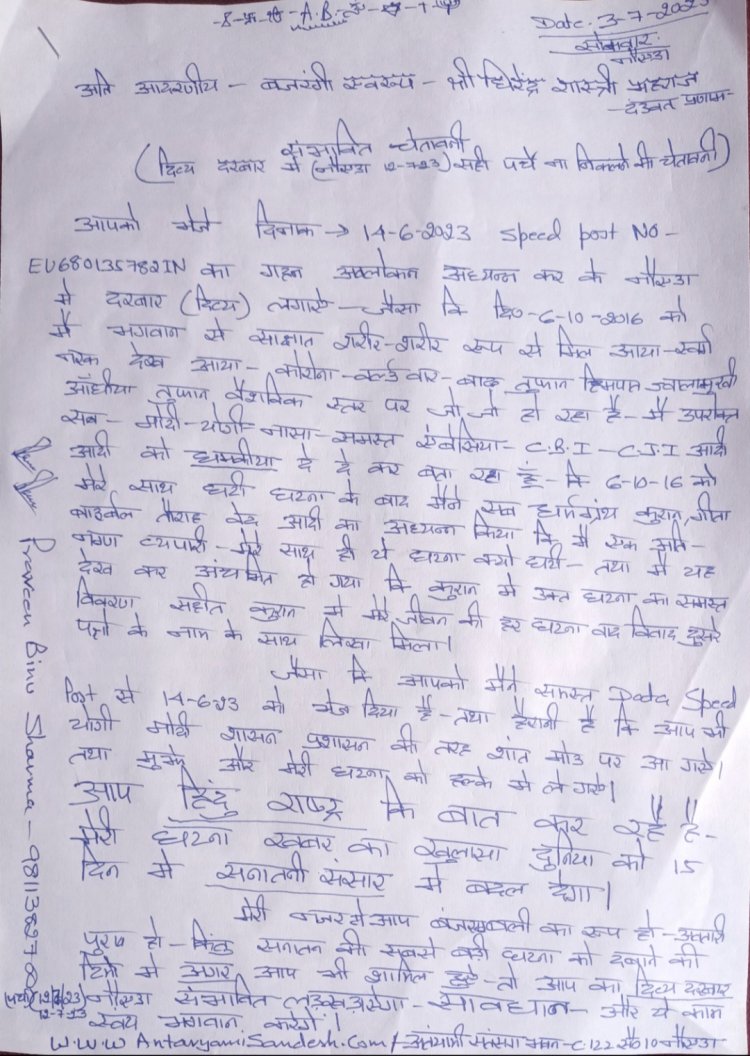 Date. 3-7-2023
सोमवार
नौएडा
अति आदरणीय - बजरंगी स्वरूप - श्री धिरेंद्र शास्त्री महाराज
- दंडवत प्रणाम -
संभावित चेतावनी
(दिव्य दरबार में (नौएडा 12-7-23) सही पर्चे ना निकलने की चेतावनी)
आपको भेजे दिनाक → 14-6-2023 Speed post NO -
EU680135782IN का गहन अवलोकन अध्यन्न कर के नौएडा
में दरबार (दिव्य) लगाऐ - जैसा कि दि0-6-10-2016 को
मैं भगवान से साक्षात शरीर-शरीर रूप से मिल आया - स्वर्ग
नरक देख आया - कोरोना - वर्ल्ड वार - बाढ़ तुफान हिमपात ज्वालामुखी
आंधीया तुफान वैश्विक स्तर पर जो जो हो रहा है - मैं उपरोक्त
सब - मोदी - योगी - नासा - समस्त C.B.I - C.J.I आदी
आदी को धमकीया दे दे कर बता रहा हूँ - कि 6-10-16 को
मेरे साथ घटी घटना के बाद मैंने सब धर्मग्रंथ कुरान, गीता
बाईबल तौराह वेद आदी का अध्यन्न किया कि मैं एक अति -
व्यपारी - मेरे साथ ही ये घटना क्यो घटी - तथा मैं यह
देख कर हो गया कि कुरान मे उक्त घटना का समस्त
विवरण सहीत कुरान मे मेरे जीवन की हर घटना वाद विवाद दुसरे
के नाम के साथ लिखा मिला।
जैसा कि आपको मैंने समस्त Data Speed
Post से 14-6-23 को भेज दिया है - तथा हैरानी है कि आप भी
योगी मोदी शासन प्रशासन की तरह शांत मोड पर आ गऐ।
तथा मुझे और मेरी घटना को हल्के मे ले गऐ।
आप हिंदु राष्ट्र कि बात कर रहै है -
मेरी घटना खबर का खुलासा दुनिया को 15
दिन मे सनातनी संसार मे बदल देगा।
मेरी नजर मे आप बजरंगबली का रूप हो - अवतारी
पुरुष हो - किंतु सनातन की सबसे बडी घटना को दबाने की
मे अगर आप भी शामिल हुऐ - तो आप का दिव्य दरबार
12-7-23 नौएडा संभावित लडखडाऐगा - सावधान - और ये काम
स्वंय भगवान करेगे।
W.W.W AntaryamiSandesh.Com / अंतर्यामी भवन - C-122 सै0 10 नौएडा
Praveen Binu Sharma - 9811382700